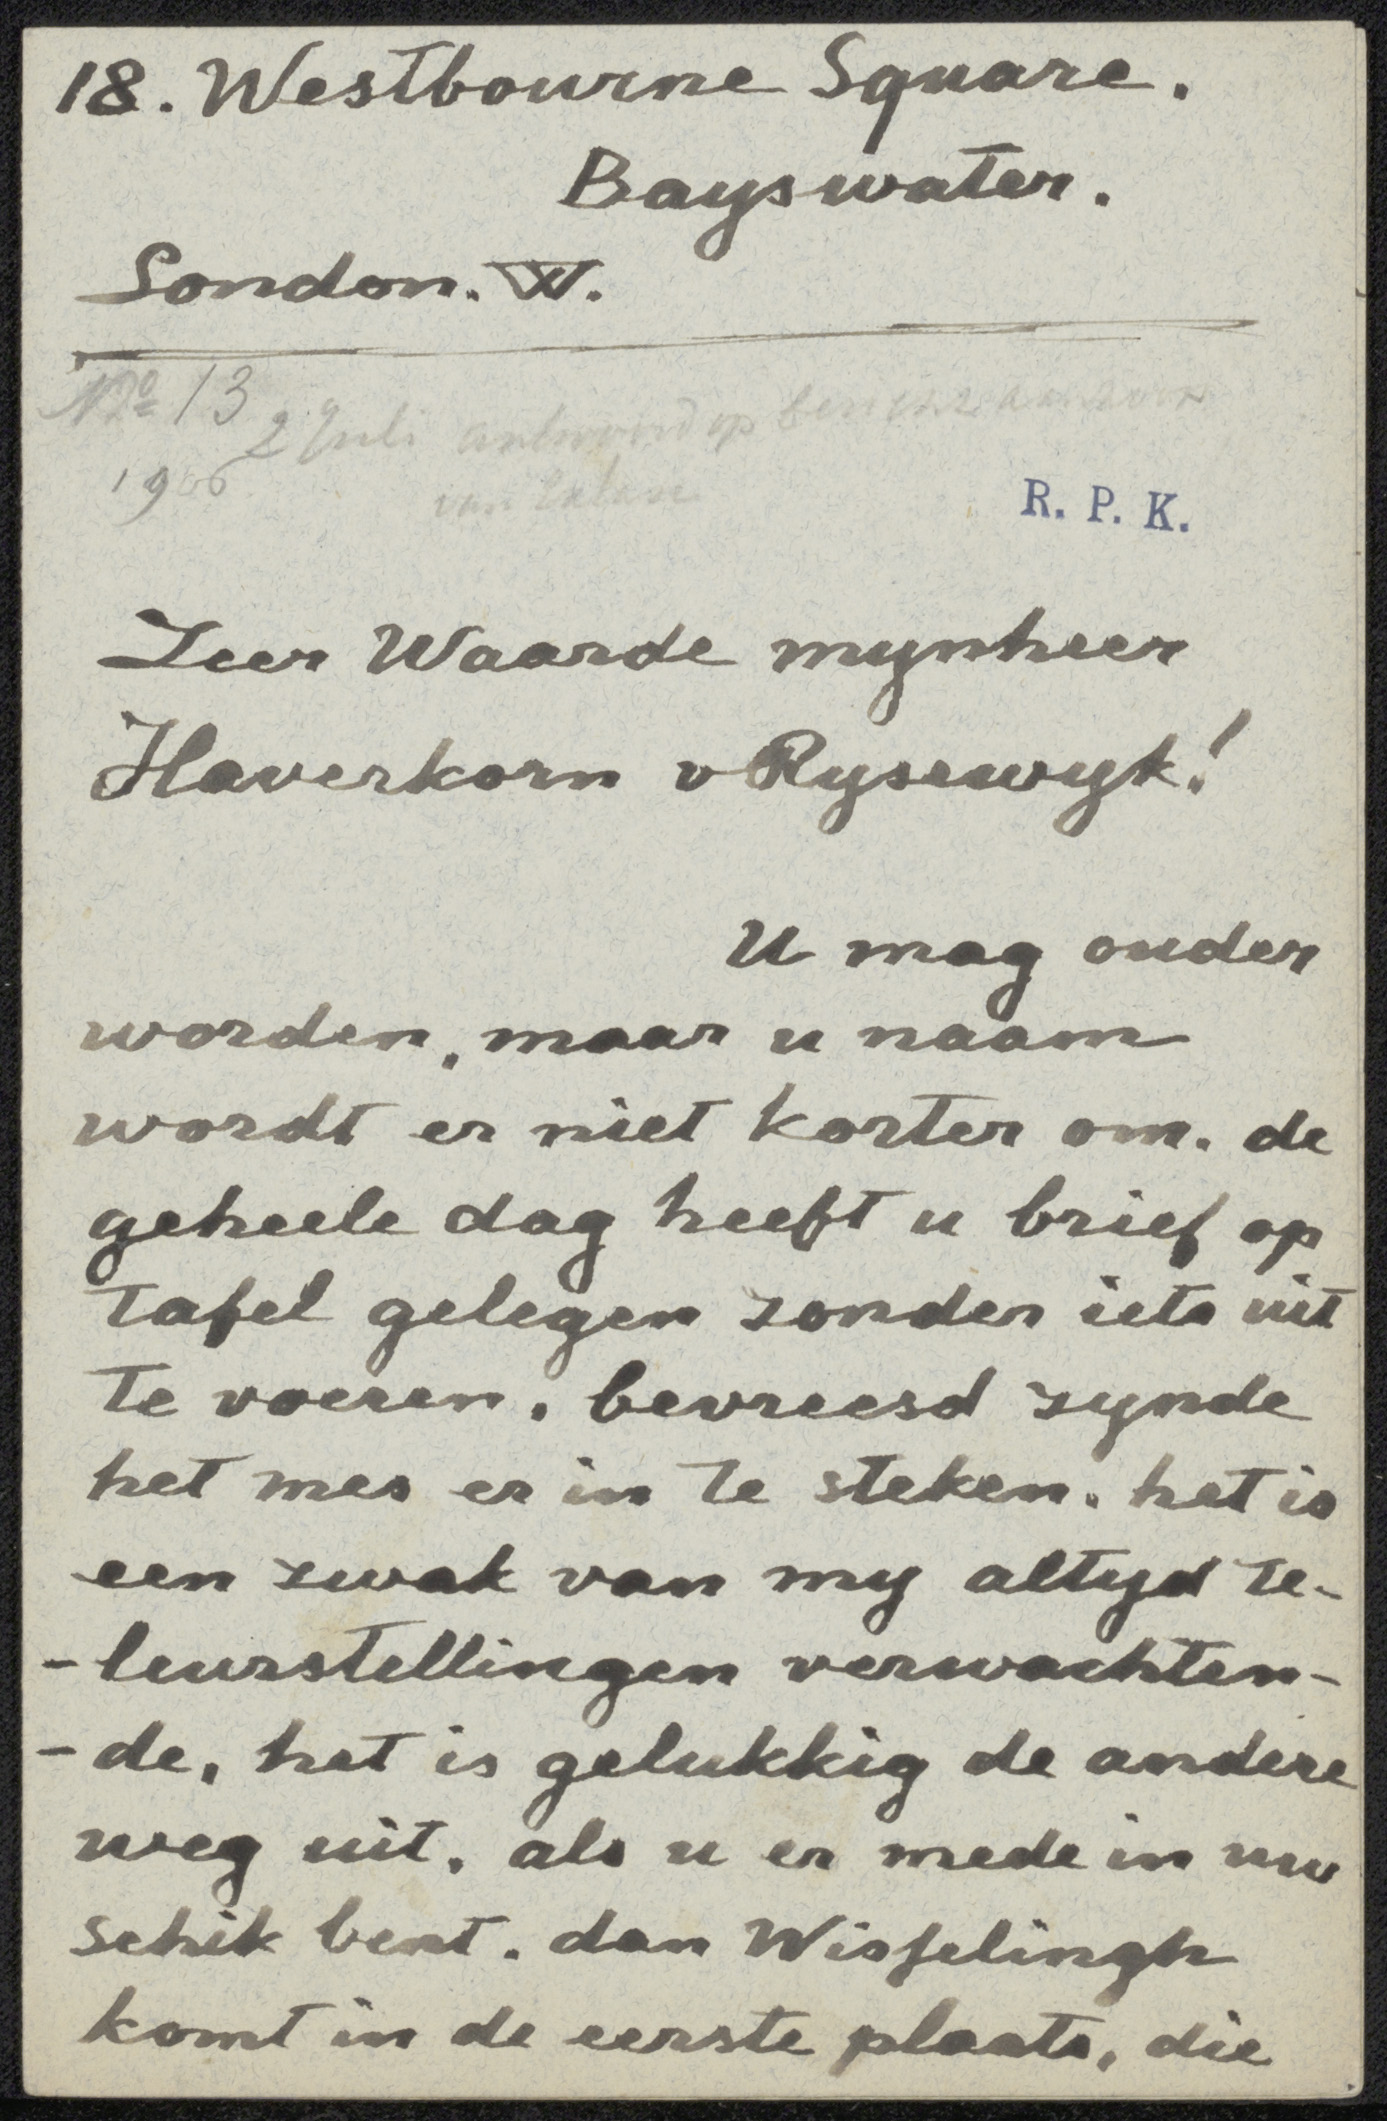 18. Westbourne Square.
Bayswater.
London. W.
No 13 2 Juli antwoord op
1906 van
R. P. K.
Zeer Waarde mynheer
Haverkorn v Rysewyk!
U mag ouder
worden, maar u naam
wordt er niet korter om. de
geheele dag heeft u brief op
tafel gelegen zonder iets uit
te voeren, bevreesd zynde
het mes er in te steken. het is
een zwak van my altyd te-
-leurstellingen verwachten-
-de, het is gelukkig de andere
weg uit. als u er mede in uw
schik bent. dan Wisselingh
komt in de eerste plaats, die